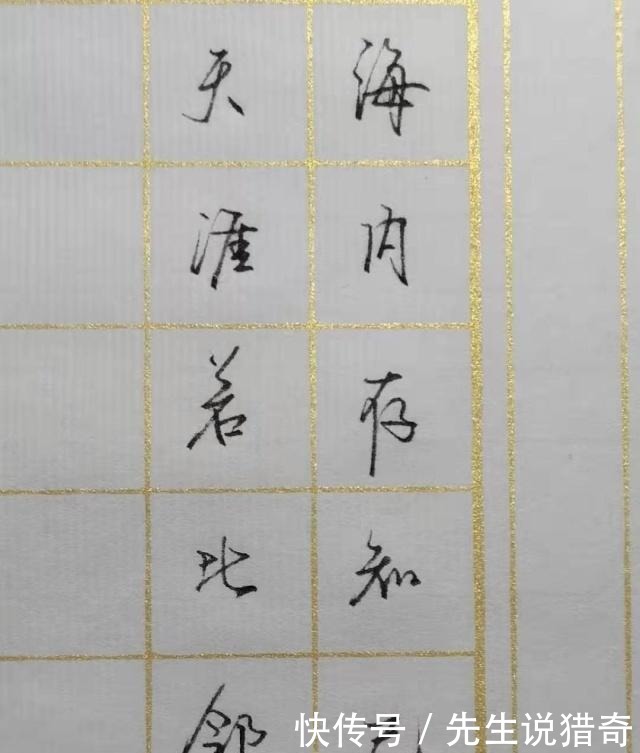 海内存知
天涯若比邻
快传号 / 先生说猎奇